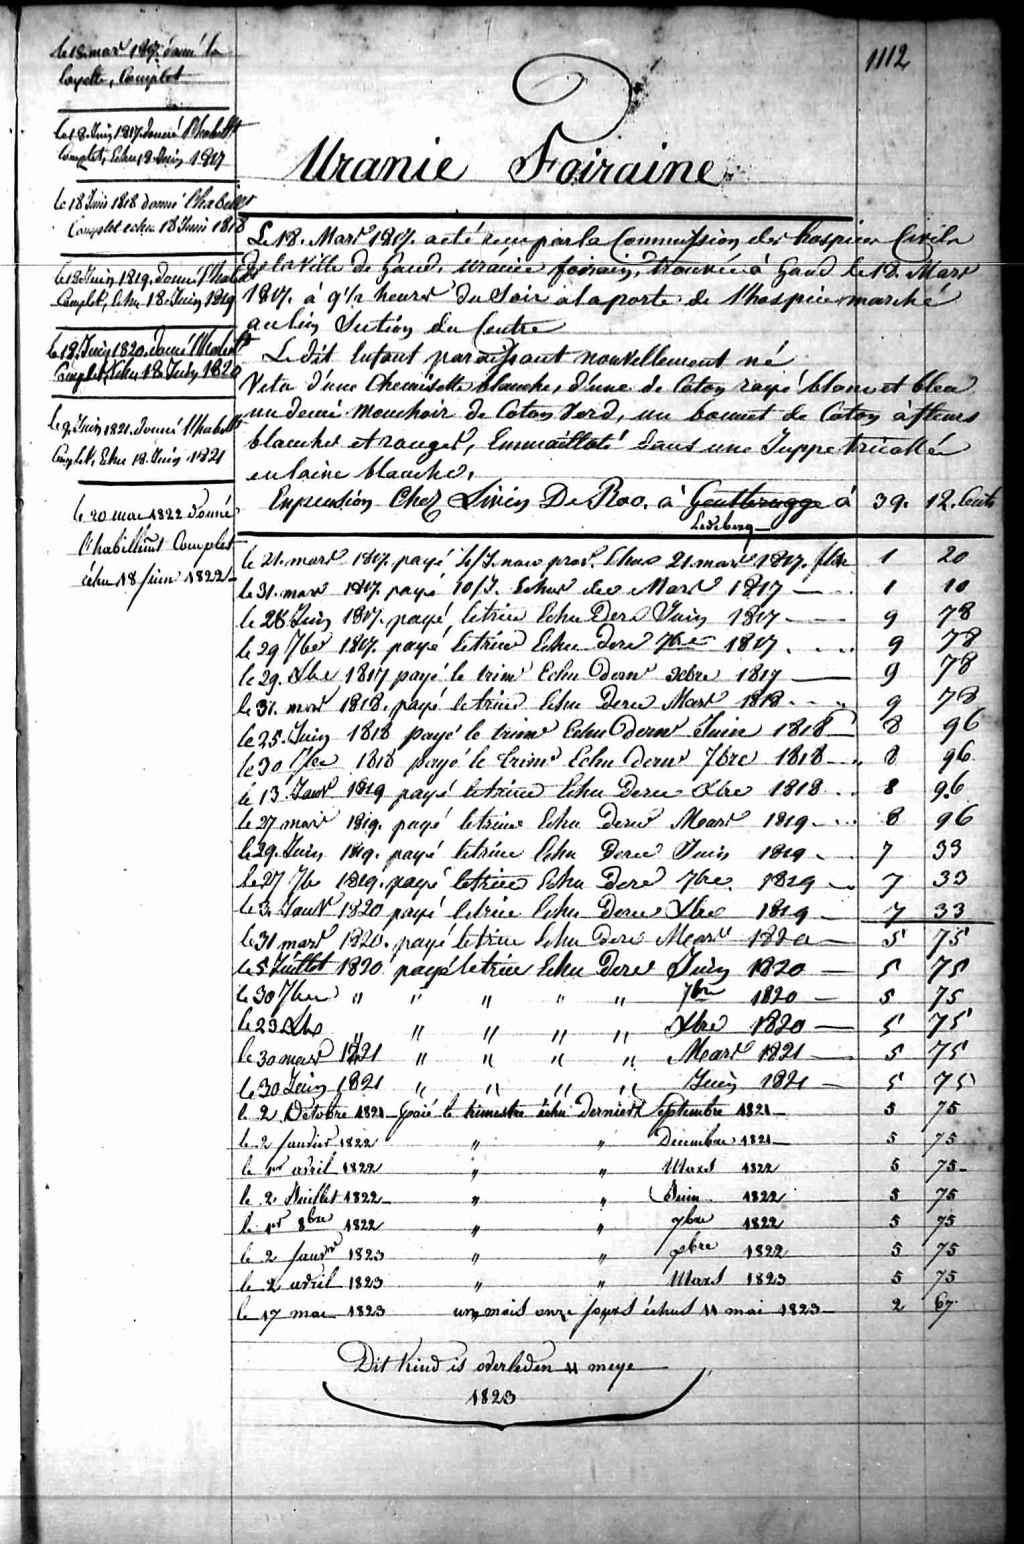 1112
Uranie Foiraine
le 18 mars 1817. donné la
layette, Complet
le 18. Juin 1817 donné l'habillt
Complet, Echu 18 Juin 1817
le 18 Juin 1818 donné l'habillt
Complet echu 18 Juin 1818
le 18 Juin 1819. donné l'habillt
Complet, Echu 18. Juin 1819
le 18. Juin 1820. donné l'habillt
Complet, Echu 18 Juin 1820
le 9 Juin 1821. donné l'habillt
Complet, Echu 18. Juin 1821
le 20 mai 1822 donné
l'habillemt Complet
échu 18 juin 1822
Le 18. Mars 1817. a été reçu par la Commission des hospices Civils
de la Ville de Gand. Uranie foirain, trouvée à Gand le 18. Mars
1817. à 9 1/2 heures du Soir a la porte de l'hospice marché
au lin Section du Centre
Le dit Enfant paraissant nouvellement né
Vetu d'une Chemisette blanche, d'une de Coton rayé blanc et bleu
un demi mouchoir de Coton Verd, un bonnet de Coton à fleurs
blanches et rouges, Emmailloté dans une Juppe tricottée
en laine blanche.
Enpension Chez Livin De Roo. à Gentbrugge à 39. 12. Cents
Ledeberg
le 21. mars 1817. payé Echus 21. mars 1817. 1 20
le 31. mars 1817. payé 10/J. Echus de Mars 1817 1 10
le 28 Juin 1817. payé le trim Echu Dern Juin 1817 9 78
le 29 7bre 1817. payé le trim Echu Dern 7bre 1817 9 78
le 29. Xbre 1817 payé le trimr Echu dernr Xbre 1817 9 78
le 31. mars 1818. payé le trim Echu Dern Mars 1818 9 78
le 25. Juin 1818 payé le trimr Echu dernr Juin 1818 8 96
le 30 7bre 1818 payé le trimr Echu dernr 7bre 1818 8 96
le 13 Janvr 1819 payé le trim Echu Dern Xbre 1818 8 96
le 27 mars 1819. payé le trim Echu Dern Mars 1819 8 96
le 29. Juin 1819. payé le trim Echu Dern Juin 1819 7 33
le 27 7bre 1819. payé le trim Echu Dern 7bre. 1819 7 33
le 3. Janvr 1820 payé le trim Echu Dern Xbre 1819 7 33
le 31 mars 1820. payé le trim Echu Dern Mars 1820 5 75
le 5 Juillet 1820 payé le trim Echu Dern Juin 1820 5 75
le 30 7bre " " " " " 7bre 1820 5 75
le 29 Xbre " " " " " Xbre 1820 5 75
le 30 mars 1821 " " " " Mars 1821 5 75
le 30 Juin 1821 " " " " Juin 1821 5 75
le 2 Octobre 1821 payé le trimestre échu dernier Septembre 1821 5 75
le 2 janvier 1822 " " Décembre 1821 5 75
le 1er avril 1822 " " Mars 1822 5 75
le 2 Juillet 1822 " " Juin 1822 5 75
le 1er 8bre 1822 " " 7bre 1822 5 75
le 2 janvr 1823 " " Xbre 1822 5 75
le 2 avril 1823 " " Mars 1823 5 75
le 17 mai 1823 un mois onze jours échus 11 mai 1823 2 67
Dit Kind is overleden 11 meye
1823